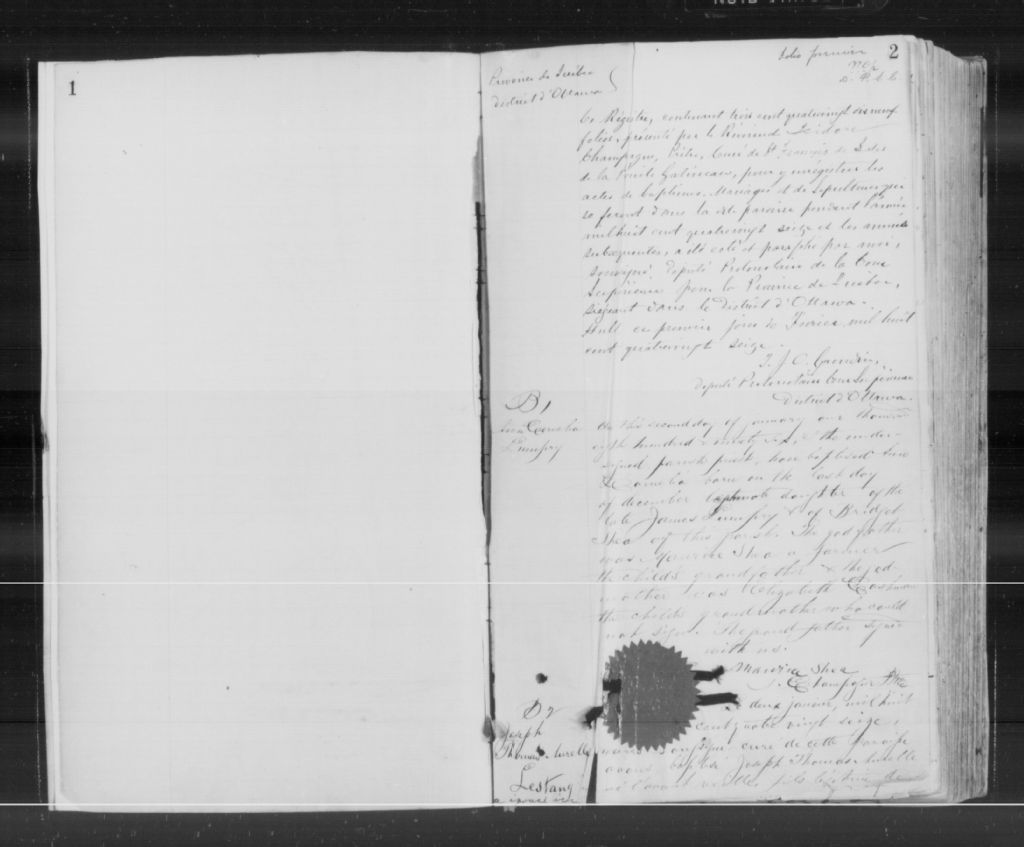 1
2
Folio premier
Province de Québec
District d'Ottawa
Ce Registre, contenant trois cent quatrevingt dix neuf
folios, présenté par le Révérend Isidore
Champagne, Prêtre, Curé de St François de Sales
de la Pointe Gatineau, pour y enrégistrer les
actes de baptêmes, Mariages et de Sépultures qui
se feront dans la dite paroisse pendant l'année
mil huit cent quatrevingt seize et les années
subséquentes, a été coté et paraphé par moi,
soussigné, député Protonotaire de la Cour
Supérieure pour la Province de Québec,
siégeant dans le district d'Ottawa.
Hull ce premier jour de Février mil huit
cent quatrevingt seize.
Député Protonotaire Cour Supérieure
District d'Ottawa.
B 1
Cornelia
On this second day of January one thousand
eight hundred & ninety six, I the under-
signed parish priest, have baptised
Cornelia born on the last day
of december legitimate daughter of the
late James & of Bridget
Shea of this parish. The godfather
was Maurice Shea a farmer
the child's grandfather & the god-
mother was Elizabeth
the child's grandmother who could
not sign. The grand father signed
with us.
Maurice Shea
I. Champagne Ptre
B 2
Joseph
Thomas
Lestang
deux janvier, mil huit
cent quatre vingt seize,
nous soussigné curé de cette paroisse
avons baptisé Joseph Thomas
né l'avant veille, fils légitime de